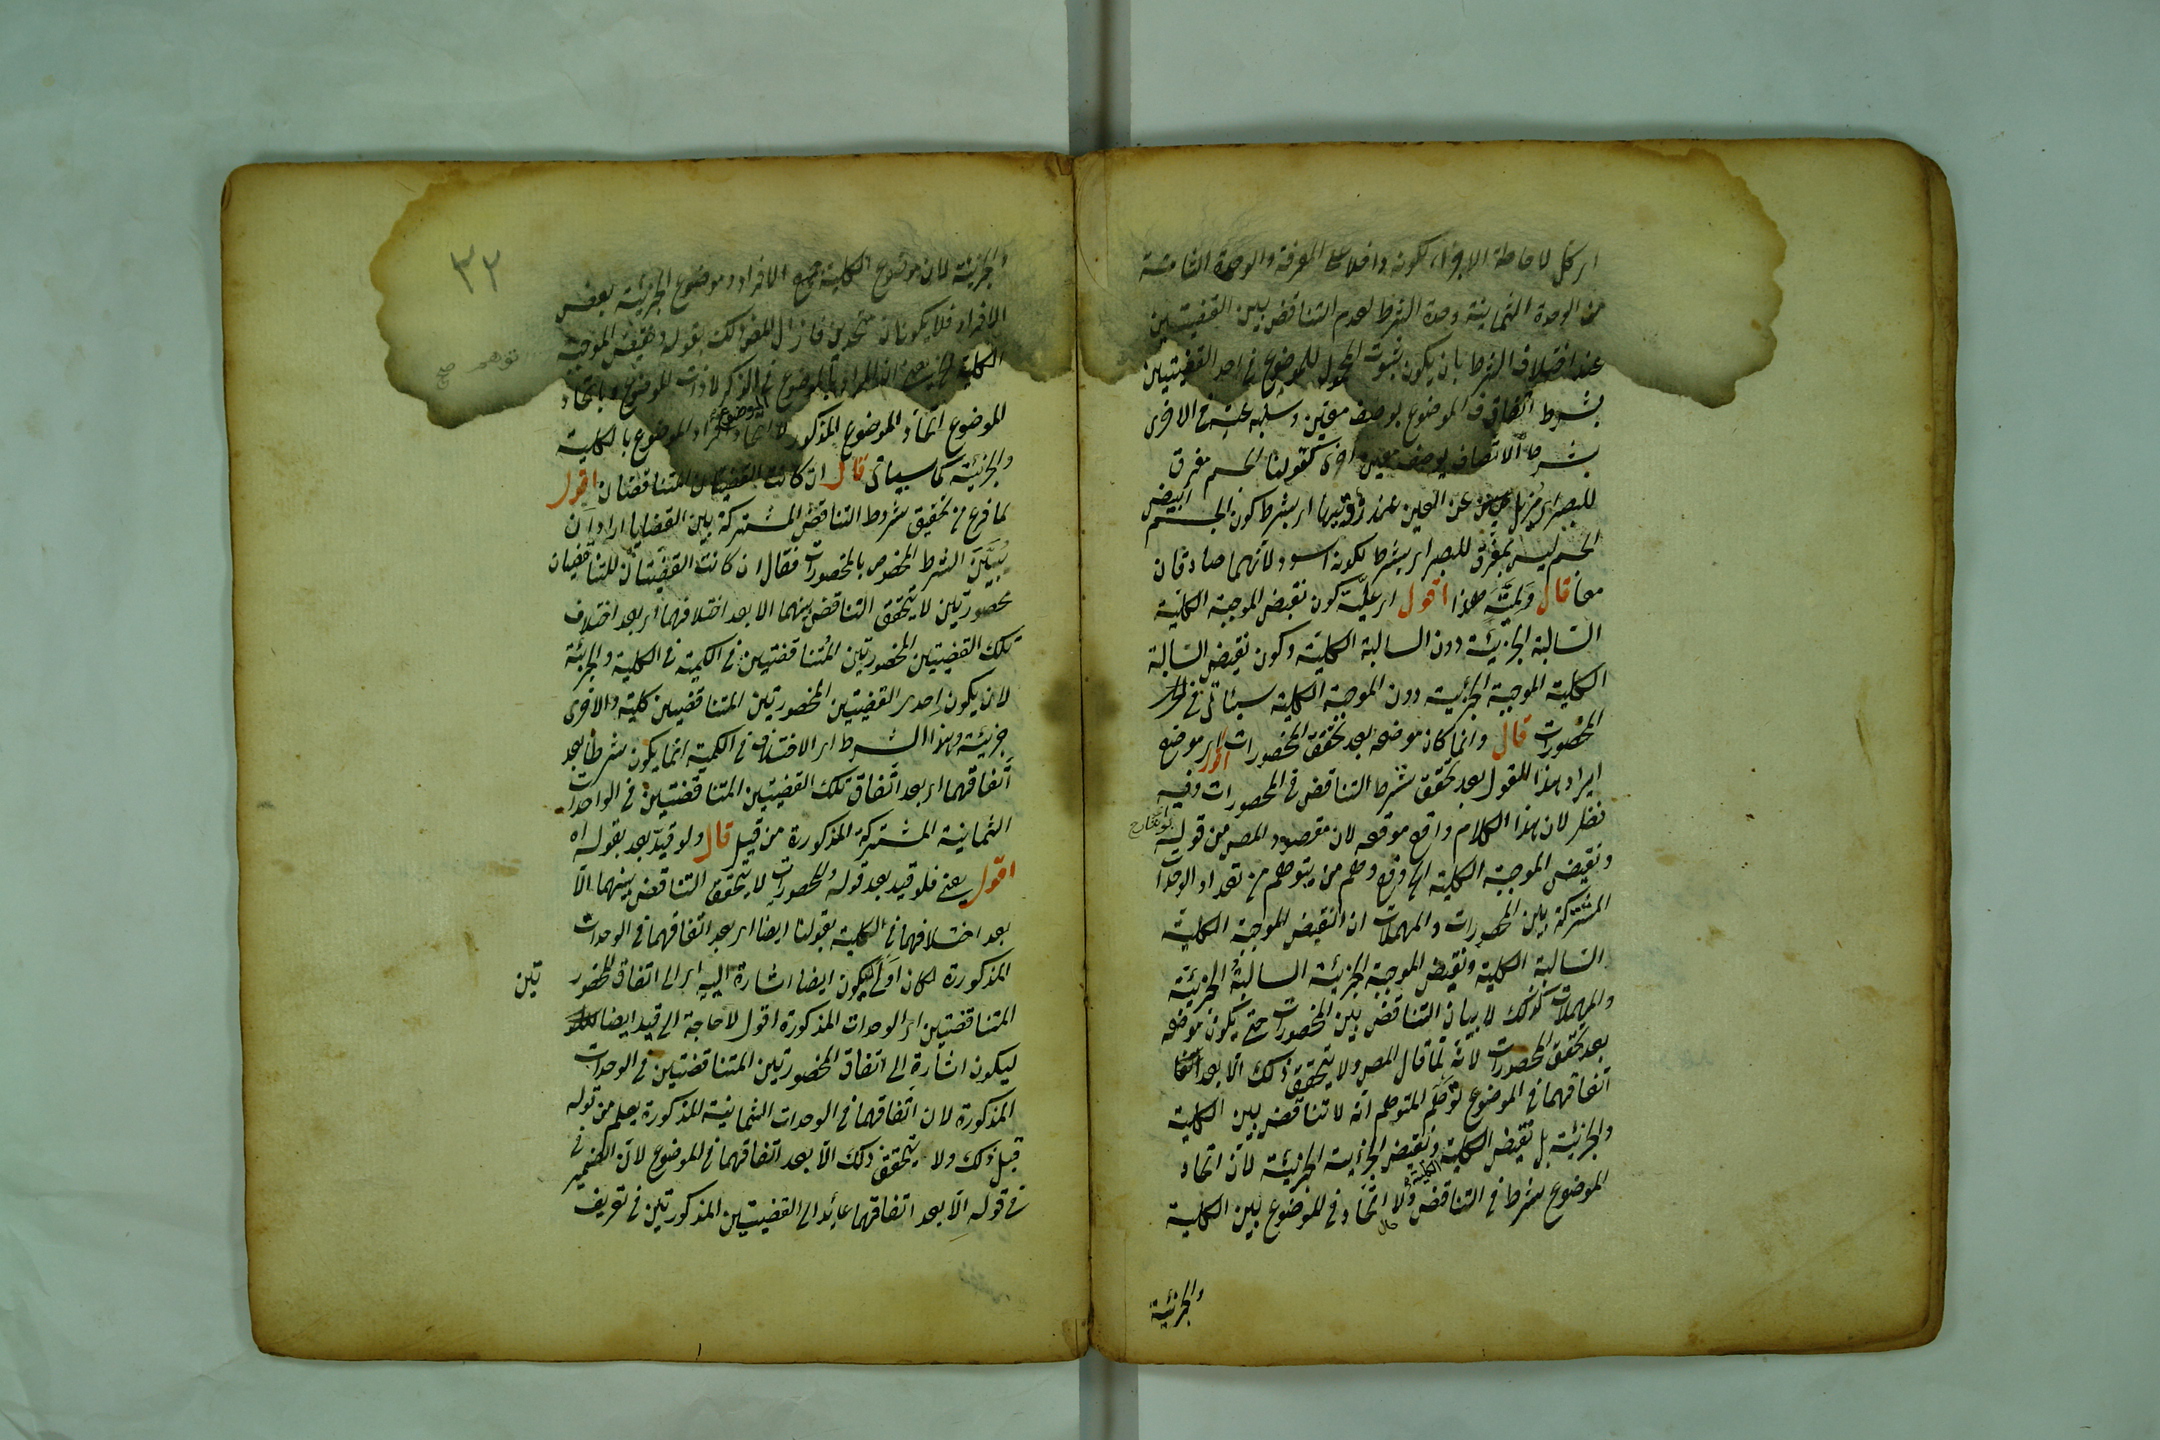 اى كل لاحاطة الاجزاء لكونه داخلا على المعرفة والوحدة الثامنة
من الوحدة الثمانية وحدة الشرط لعدم التناقض بين القضيتين
عند اختلاف الشرط بان يكون ثبوت المحمول للموضوع فى احد القضيتين
بشرط اتصاف الموضوع بوصف معين وسلبه عنه فى الاخرى
بشرط الاتصاف بوصف معين آخر كقولنا الجسم مفرق
للبصر اى مزيل عن العين عند رؤيتها اى بشرط كون الجسم ابيض
الجسم ليس بمفرق للبصر اى بشرط لكونه اسود لأنهما صادقان
معا قال ولمية هذا اقول اى علية كون نقيض الموجبة الكلية
السالبة الجزئية دون السالبة الكلية وكون نقيض السالبة
الكلية الموجبة الجزئية دون الموجبة الكلية سيئاتى فى
المحصورات قال وانما كان موضعه بعد تحقق المحصورات اقول اى موضع
ايراد هذا القول بعد تحقق شرط التناقض فى المحصورات وفيه
نظر لان هذا الكلام واقع موقعه لان مقصود المص من قوله
ونقيض الموجبة الكلية الخ دفع وهم من يتوهم من تعداد الوحدات
المشتركة بين المحصورات والمهملات ان النقيض الموجبة الكلية
السالبة الكلية ونقيض الموجبة الجزئية السالبة الجزئية
والمهملات كذلك لا بيان التناقض بين المحصورات حتى يكون موضعه
بعد تحقق المحصورات لأنه لما قال المص ولا يتحقق ذلك الا بعد
اتفاقهما فى الموضوع توهم المتوهم انه لا تناقض بين الكلية
والجزئية بل نقيض الكلية الكلية ونقيض الجزئية الجزئية لان اتحاد
الموضوع شرط فى التناقض ولا اتحاد فى الموضوع بين الكلية
والجزئية
٣٢
والجزئية لان موضوع الكلية جميع الافراد وموضوع الجزئية بعض
الافراد فلا يكونان متحدين فازال المص ذلك بقوله ونقيض الموجبة
توهم صح
الكلية الخ يعنى ان المراد بالموضوع فى الذكر لا ذات الموضوع وباتحاد
الموضوع اتحاد الموضوع المذكور لا اتحاد افراد الموضوع بالكلية
والجزئية كما سيأتى قال ان كانت القضيتان المتناقضتان اقول
لما فرغ من تحقيق شروط التناقض المشتركة بين القضايا اراد ان
يبين الشرط المخصوص بالمحصورات فقال ان كانت القضيتان المتناقضيان
محصورتين لا يتحقق التناقض بينهما الا بعد اختلافهما اى بعد اختلاف
تلك القضيتين المحصورتين المتناقضتين فى الكمية فى الكلية والجزئية
لان يكون احدى القضيتين المحصورتين المتناقضيتين كلية والاخرى
جزئية وهذا الشرط اى الاختلاف فى الكمية انما يكون شرطا بعد
اتفاقهما اى بعد اتفاق تلك القضيتين المتناقضتين فى الواحدات
الثمانية المشتركة المذكورة من قبل قال ولو قيد بعد بقوله اه
اقول يعنى فلو قيد بعد قوله والمحصورات لا يتحقق التناقض بينهما الا
بعد اختلافهما فى الكلية بقولنا ايضا اى بعد اتفاقهما فى الوحدات
المذكورة لكان اولى ليكون ايضا اشارة اليه اى الى اتفاق المحصور
تين
المتناقضتين اى الوحدات المذكورة اقول لا حاجة الى قيد ايضا
ليكون اشارة الى اتفاق المحصورتين المتناقضتين فى الوحدات
المذكورة لان اتفاقهما فى الوحدات الثمانية المذكورة يعلم من قوله
قبل ذلك ولا يتحقق ذلك الا بعد اتفاقهما فى الموضوع لان الضمير
فى قوله الا بعد اتفاقهما عائد الى القضيتين المذكورتين فى تعريف